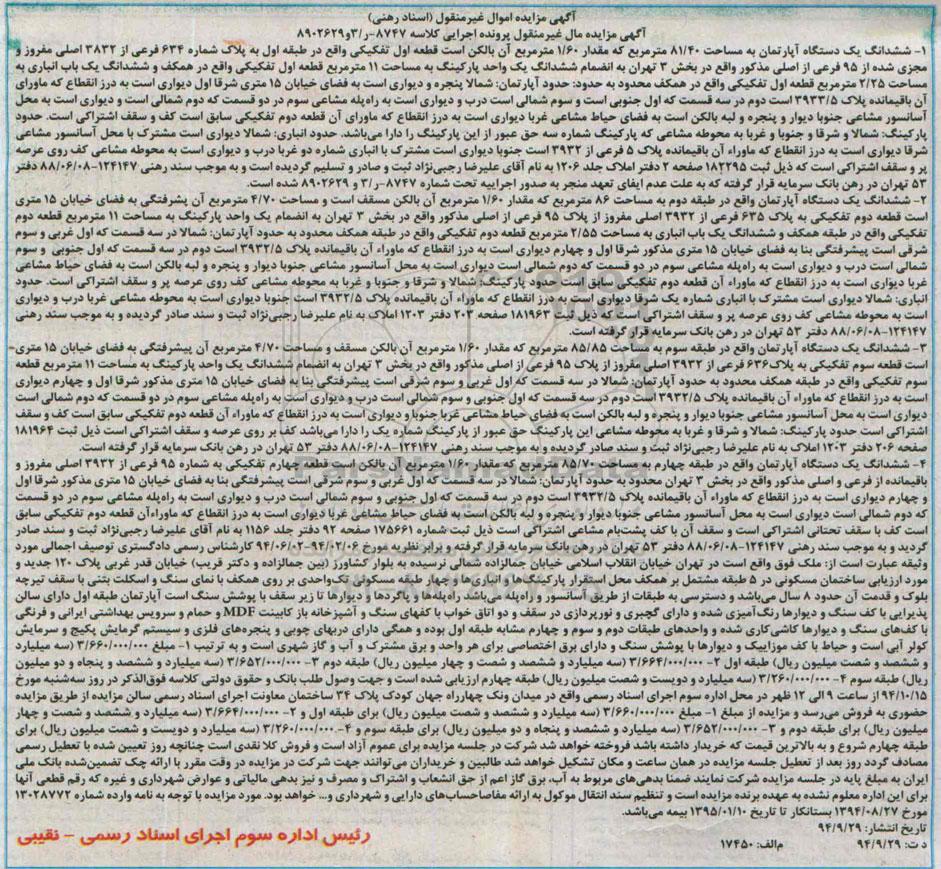 آگهی مزایده اموال غیرمنقول (اسناد رهنی)
آگهی مزایده مال غیرمنقول پرونده اجرایی کلاسه ۸۷۴۷-ر/۳و۸۹۰۲۶۲۹
۱- ششدانگ یک دستگاه آپارتمان به مساحت ۸۱/۴۰ مترمربع که مقدار ۱/۶۰ مترمربع آن بالکن است قطعه اول تفکیکی واقع در طبقه اول به پلاک شماره ۶۳۴ فرعی از ۳۸۳۲ اصلی مفروز و
مجزی شده از ۹۵ فرعی از اصلی مذکور واقع در بخش ۳ تهران به انضمام ششدانگ یک واحد پارکینگ به مساحت ۱۱ مترمربع قطعه اول تفکیکی واقع در همکف و ششدانگ یک باب انباری به
مساحت ۲/۲۵ مترمربع قطعه اول تفکیکی واقع در همکف محدود به حدود: حدود آپارتمان: شمالا پنجره و دیواری است به فضای خیابان ۱۵ متری شرقا اول دیواری است به درز انقطاع که ماورای
آن باقیمانده پلاک ۳۹۳۳/۵ است دوم در سه قسمت که اول جنوبی است و سوم شمالی است درب و دیواری است به راه‌پله مشاعی سوم در دو قسمت که دوم شمالی است و دیواری است به محل
آسانسور مشاعی جنوبا دیوار و پنجره و لبه بالکن است به فضای حیاط مشاعی غربا دیواری است به درز انقطاع که ماورای آن قطعه دوم تفکیکی سابق است کف و سقف اشتراکی است. حدود
پارکینگ: شمالا و شرقا و جنوبا و غربا به محوطه مشاعی که پارکینگ شماره سه حق عبور از این پارکینگ را دارا می‌باشد. حدود انباری: شمالا دیواری است مشترک با محل آسانسور مشاعی
شرقا دیواری است به درز انقطاع که ماوراء آن باقیمانده پلاک ۵ فرعی از ۳۹۳۲ است جنوبا دیواری است مشترک با انباری شماره دو غربا درب و دیواری است به محوطه مشاعی کف روی عرصه
پر و سقف اشتراکی است که ذیل ثبت ۱۸۲۲۹۵ صفحه ۲ دفتر املاک جلد ۱۲۰۶ به نام آقای علیرضا رجبی‌نژاد ثبت و صادر و تسلیم گردیده است و به موجب سند رهنی ۱۲۴۱۴۷-۸۸/۰۶/۰۸ دفتر
۵۳ تهران در رهن بانک سرمایه قرار گرفته که به علت عدم ایفای تعهد منجر به صدور اجراییه تحت شماره ۸۷۴۷-ر/۳ و ۸۹۰۲۶۲۹ شده است.
۲- ششدانگ یک دستگاه آپارتمان واقع در طبقه دوم به مساحت ۸۶ مترمربع که مقدار ۱/۶۰ مترمربع آن بالکن مسقف است و مساحت ۴/۷۰ مترمربع آن پشرفتگی به فضای خیابان ۱۵ متری
است قطعه دوم تفکیکی به پلاک ۶۳۵ فرعی از ۳۹۳۲ اصلی مفروز از پلاک ۹۵ فرعی از اصلی مذکور واقع در بخش ۳ تهران به انضمام یک واحد پارکینگ به مساحت ۱۱ مترمربع قطعه دوم
تفکیکی واقع در طبقه همکف و ششدانگ یک باب انباری به مساحت ۲/۵۵ مترمربع قطعه دوم تفکیکی واقع در طبقه همکف محدود به حدود آپارتمان: شمالا در سه قسمت که اول غربی و سوم
شرقی است پیشرفتگی بنا به فضای خیابان ۱۵ متری مذکور شرقا اول و چهارم دیواری است به درز انقطاع که ماوراء آن باقیمانده پلاک ۳۹۳۲/۵ است دوم در سه قسمت که اول جنوبی و سوم
شمالی است درب و دیواری است به راه‌پله مشاعی سوم در دو قسمت که دوم شمالی است دیواری است به محل آسانسور مشاعی جنوبا دیوار و پنجره و لبه بالکن است به فضای حیاط مشاعی
غربا دیواری است به درز انقطاع که ماوراء آن قطعه دوم تفکیکی سابق است حدود پارکینگ: شمالا و شرقا و جنوبا و غربا به محوطه مشاعی کف روی عرصه پر و سقف اشتراکی است. حدود
انباری: شمالا دیواری است مشترک با انباری شماره یک شرقا دیواری است به درز انقطاع که ماوراء آن باقیمانده پلاک ۳۹۳۲/۵ است جنوبا دیواری است به محوطه مشاعی غربا درب و دیواری
است به محوطه مشاعی کف روی عرصه پر و سقف اشتراکی است که ذیل ثبت ۱۸۱۹۶۳ صفحه ۲۰۳ دفتر ۱۲۰۳ املاک به نام علیرضا رجبی‌نژاد ثبت و سند صادر گردیده و به موجب سند رهنی
۱۲۴۱۴۷-۸۸/۰۶/۰۸ دفتر ۵۳ تهران در رهن بانک سرمایه قرار گرفته است.
۳- ششدانگ یک دستگاه آپارتمان واقع در طبقه سوم به مساحت ۸۵/۸۵ مترمربع که مقدار ۱/۶۰ مترمربع آن بالکن مسقف و مساحت ۴/۷۰ مترمربع آن پیشرفتگی به فضای خیابان ۱۵ متری-
است قطعه سوم تفکیکی به پلاک۶۳۶ فرعی از ۳۹۳۲ اصلی مفروز از پلاک ۹۵ فرعی از اصلی مذکور واقع در بخش ۳ تهران به انضمام ششدانگ یک واحد پارکینگ به مساحت ۱۱ مترمربع قطعه
سوم تفکیکی واقع در طبقه همکف محدود به حدود آپارتمان: شمالا در سه قسمت که اول غربی و سوم شرقی است پیشرفتگی بنا به فضای خیابان ۱۵ متری مذکور شرقا اول و چهارم دیواری
است به درز انقطاع که ماوراء آن باقیمانده پلاک ۳۹۳۲/۵ است دوم در سه قسمت که اول جنوبی و سوم شمالی است درب و دیواری است به راه‌پله مشاعی سوم در دو قسمت که دوم شمالی است
دیواری است به محل آسانسور مشاعی جنوبا دیوار و پنجره و لبه بالکن است به فضای حیاط مشاعی غربا جنوبا و دیواری است به درز انقطاع که ماوراء آن قطعه دوم تفکیکی سابق است کف و سقف
اشتراکی است حدود پارکینگ: شمالا و شرقا و غربا به محوطه مشاعی این پارکینگ حق عبور از پارکینگ شماره یک را دارا می‌باشد کف بر روی عرصه و سقف اشتراکی است ذیل ثبت ۱۸۱۹۶۴
صفحه ۲۰۶ دفتر ۱۲۰۳ املاک به نام علیرضا رجبی‌نژاد ثبت و سند صادر گردیده و به موجب سند رهنی ۱۲۴۱۴۷-۸۸/۰۶/۰۸ دفتر ۵۳ تهران در رهن بانک سرمایه قرار گرفته است.
۴- ششدانگ یک دستگاه آپارتمان واقع در طبقه چهارم به مساحت ۸۵/۷۰ مترمربع که مقدار ۱/۶۰ مترمربع آن بالکن است قطعه چهارم تفکیکی به شماره ۹۵ فرعی از ۳۹۳۲ اصلی مفروز و
باقیمانده از فرعی و اصلی مذکور واقع در بخش ۳ تهران محدود به حدود آپارتمان: شمالا در سه قسمت که اول غربی و سوم شرقی است پیشرفتگی بنا به فضای خیابان ۱۵ متری مذکور شرقا اول
و چهارم دیواری است به درز انقطاع که ماوراء آن باقیمانده پلاک ۳۹۳۲/۵ است دوم در سه قسمت که اول جنوبی و سوم شمالی است درب و دیواری است به راه‌پله مشاعی سوم در دو قسمت
که دوم شمالی است دیواری است به محل آسانسور مشاعی جنوبا دیوار و پنجره و لبه بالکن است به فضای حیاط مشاعی غربا دیواری است به درز انقطاع که ماوراءآن قطعه دوم تفکیکی سابق
است کف با سقف تحتانی اشتراکی است و سقف آن با کف پشت‌بام مشاعی اشتراکی است ذیل ثبت شماره ۱۷۵۶۶۱ صفحه ۹۲ دفتر جلد ۱۱۵۶ به نام آقای علیرضا رجبی‌نژاد ثبت و سند صادر
گردید و به موجب سند رهنی ۱۲۴۱۴۷-۸۸/۰۶/۰۸ دفتر ۵۳ تهران در رهن بانک سرمایه قرار گرفته و برابر نظریه مورخ ۹۴/۰۲/۰۶-۹۴/۰۶/۰۲ کارشناس رسمی دادگستری توصیف اجمالی مورد
وثیقه عبارت است از: ملک فوق واقع است در تهران خیابان انقلاب اسلامی خیابان جمالزاده شمالی نرسیده به بلوار کشاورز (بین جمالزاده و دکتر قریب) خیابان قدر غربی پلاک ۱۲۰ جدید و
مورد ارزیابی ساختمان مسکونی در ۵ طبقه مشتمل بر همکف محل استقرار پارکینگ‌ها و انباری‌ها و چهار طبقه مسکونی تک‌واحدی بر روی همکف با نمای سنگ و اسکلت بتنی با سقف تیرچه
بلوک و قدمت آن حدود ۸ سال می‌باشد و دسترسی به طبقات از طریق آسانسور و راه‌پله می‌باشد راه‌پله‌ها و پاگردها و دیوارها تا زیر سقف با پوشش سنگ است آپارتمان طبقه اول دارای سالن
پذیرایی با کف سنگ و دیوارها رنگ‌آمیزی شده و دارای گچبری و نورپردازی در سقف و دو اتاق خواب با کفهای سنگ و آشپزخانه باز کابینت MDF و حمام و سرویس بهداشتی ایرانی و فرنگی
با کف‌های سنگ و دیوارها کاشی‌کاری شده و واحدهای طبقات دوم و سوم و چهارم مشابه طبقه اول بوده و همگی دارای دربهای چوبی و پنجره‌های فلزی و سیستم گرمایش پکیج و سرمایش
کولر آبی است و حیاط با کف موزاییک و دیوارها با پوشش سنگ و دارای برق اختصاصی برای هر واحد و برق مشترک و آب و گاز شهری است و به ترتیب ۱- مبلغ ۳/۶۶۰/۰۰۰/۰۰۰ (سه میلیارد
و ششصد و شصت میلیون ریال) طبقه اول ۲- ۳/۶۶۴/۰۰۰/۰۰۰ (سه میلیارد و ششصد و شصت و چهار میلیون ریال) طبقه دوم ۳- ۳/۶۵۲/۰۰۰/۰۰۰ (سه میلیارد و ششصد و پنجاه و دو میلیون
ریال) طبقه سوم ۴- ۳/۲۶۰/۰۰۰/۰۰۰ (سه میلیارد و دویست و شصت میلیون ریال) طبقه چهارم ارزیابی شده است و جهت وصول طلب بانک و حقوق دولتی کلاسه فوق‌الذکر در روز سه‌شنبه مورخ
۹۴/۱۰/۱۵ از ساعت ۹ الی ۱۲ ظهر در محل اداره سوم اجرای اسناد رسمی واقع در میدان ونک چهارراه جهان کودک پلاک ۳۴ ساختمان معاونت اجرای اسناد رسمی سالن مزایده از طریق مزایده
حضوری به فروش می‌رسد و مزایده از مبلغ ۱- مبلغ ۳/۶۶۰/۰۰۰/۰۰۰ (سه میلیارد و ششصد و شصت میلیون ریال) برای طبقه اول و ۲- ۳/۶۶۴/۰۰۰/۰۰۰ (سه میلیارد و ششصد و شصت و چهار
میلیون ریال) برای طبقه دوم و ۳- ۳/۶۵۲/۰۰۰/۰۰۰ (سه میلیارد و ششصد و پنجاه و دو میلیون ریال) برای طبقه سوم و ۴- ۳/۲۶۰/۰۰۰/۰۰۰ (سه میلیارد و دویست و شصت میلیون ریال) برای
طبقه چهارم شروع و به بالاترین قیمت که خریدار داشته باشد فروخته خواهد شد شرکت در جلسه مزایده برای عموم آزاد است و فروش کلا نقدی است چنانچه روز تعیین شده با تعطیل رسمی
مصادف گردد روز بعد از تعطیل جلسه مزایده در همان ساعت و مکان تشکیل خواهد شد طالبین و خریداران می‌توانند جهت شرکت در مزایده در وقت مقرر با ارائه چک تضمین‌شده بانک ملی
ایران به مبلغ پایه در جلسه مزایده شرکت نمایند ضمنا بدهی‌های مربوط به آب، برق گاز اعم از حق انشعاب و اشتراک و مصرف و نیز بدهی مالیاتی و عوارض شهرداری و غیره که رقم قطعی آنها
برای این اداره معلوم نشده به عهده برنده مزایده است و تنظیم سند انتقال موکول به ارائه مفاصاحساب‌های دارایی و شهرداری و... خواهد بود. مورد مزایده با توجه به نامه وارده شماره ۱۳۰۲۸۷۷۲
مورخ ۱۳۹۴/۰۸/۲۷ بستانکار تا تاریخ ۱۳۹۵/۰۱/۱۰ بیمه می‌باشد.
تاریخ انتشار: ۹۴/۹/۲۹
د ت: ۹۴/۹/۲۹ م‌الف: ۱۷۴۵۰
رئیس اداره سوم اجرای اسناد رسمی - نقیبی